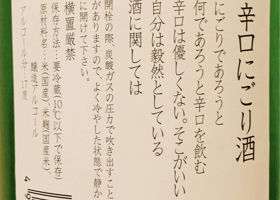 辛口にごり酒
にごりであろうと
何であろうと辛口を飲む
辛口は優しくない。そこがいい
自分は毅然としている
酒に関しては
開栓の際、炭酸ガスの圧力で吹き出すこと
がありますので、よく冷やした状態で静か
に開けて下さい。
横置厳禁
保存方法:要冷蔵(10℃以下で保存)
原材料名:米(国産)、米麹(国産米)、
醸造アルコール
アルコール分:17度